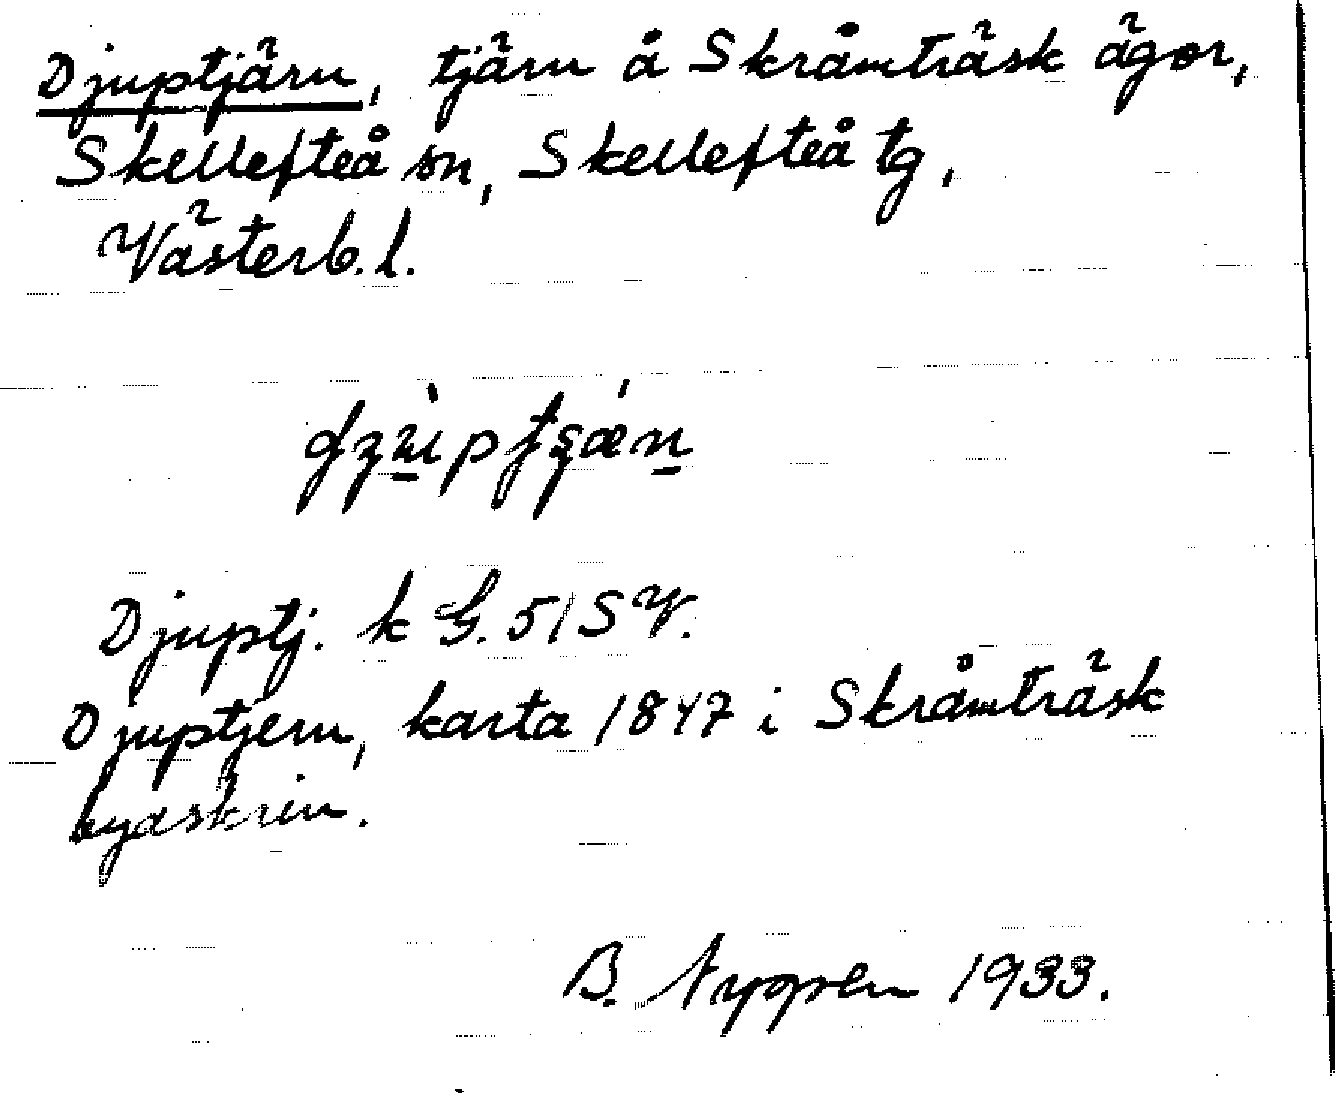 Djuptjärn, tjärn å Skråmträsk ägor,
Skellefteå sn, Skellefteå tg,
Västerb. l.
Djuptj. k G. 51 SV.
Djuptjern, karta 1847 i Skråmträsk
byaskrin.
B. Nygren 1933.